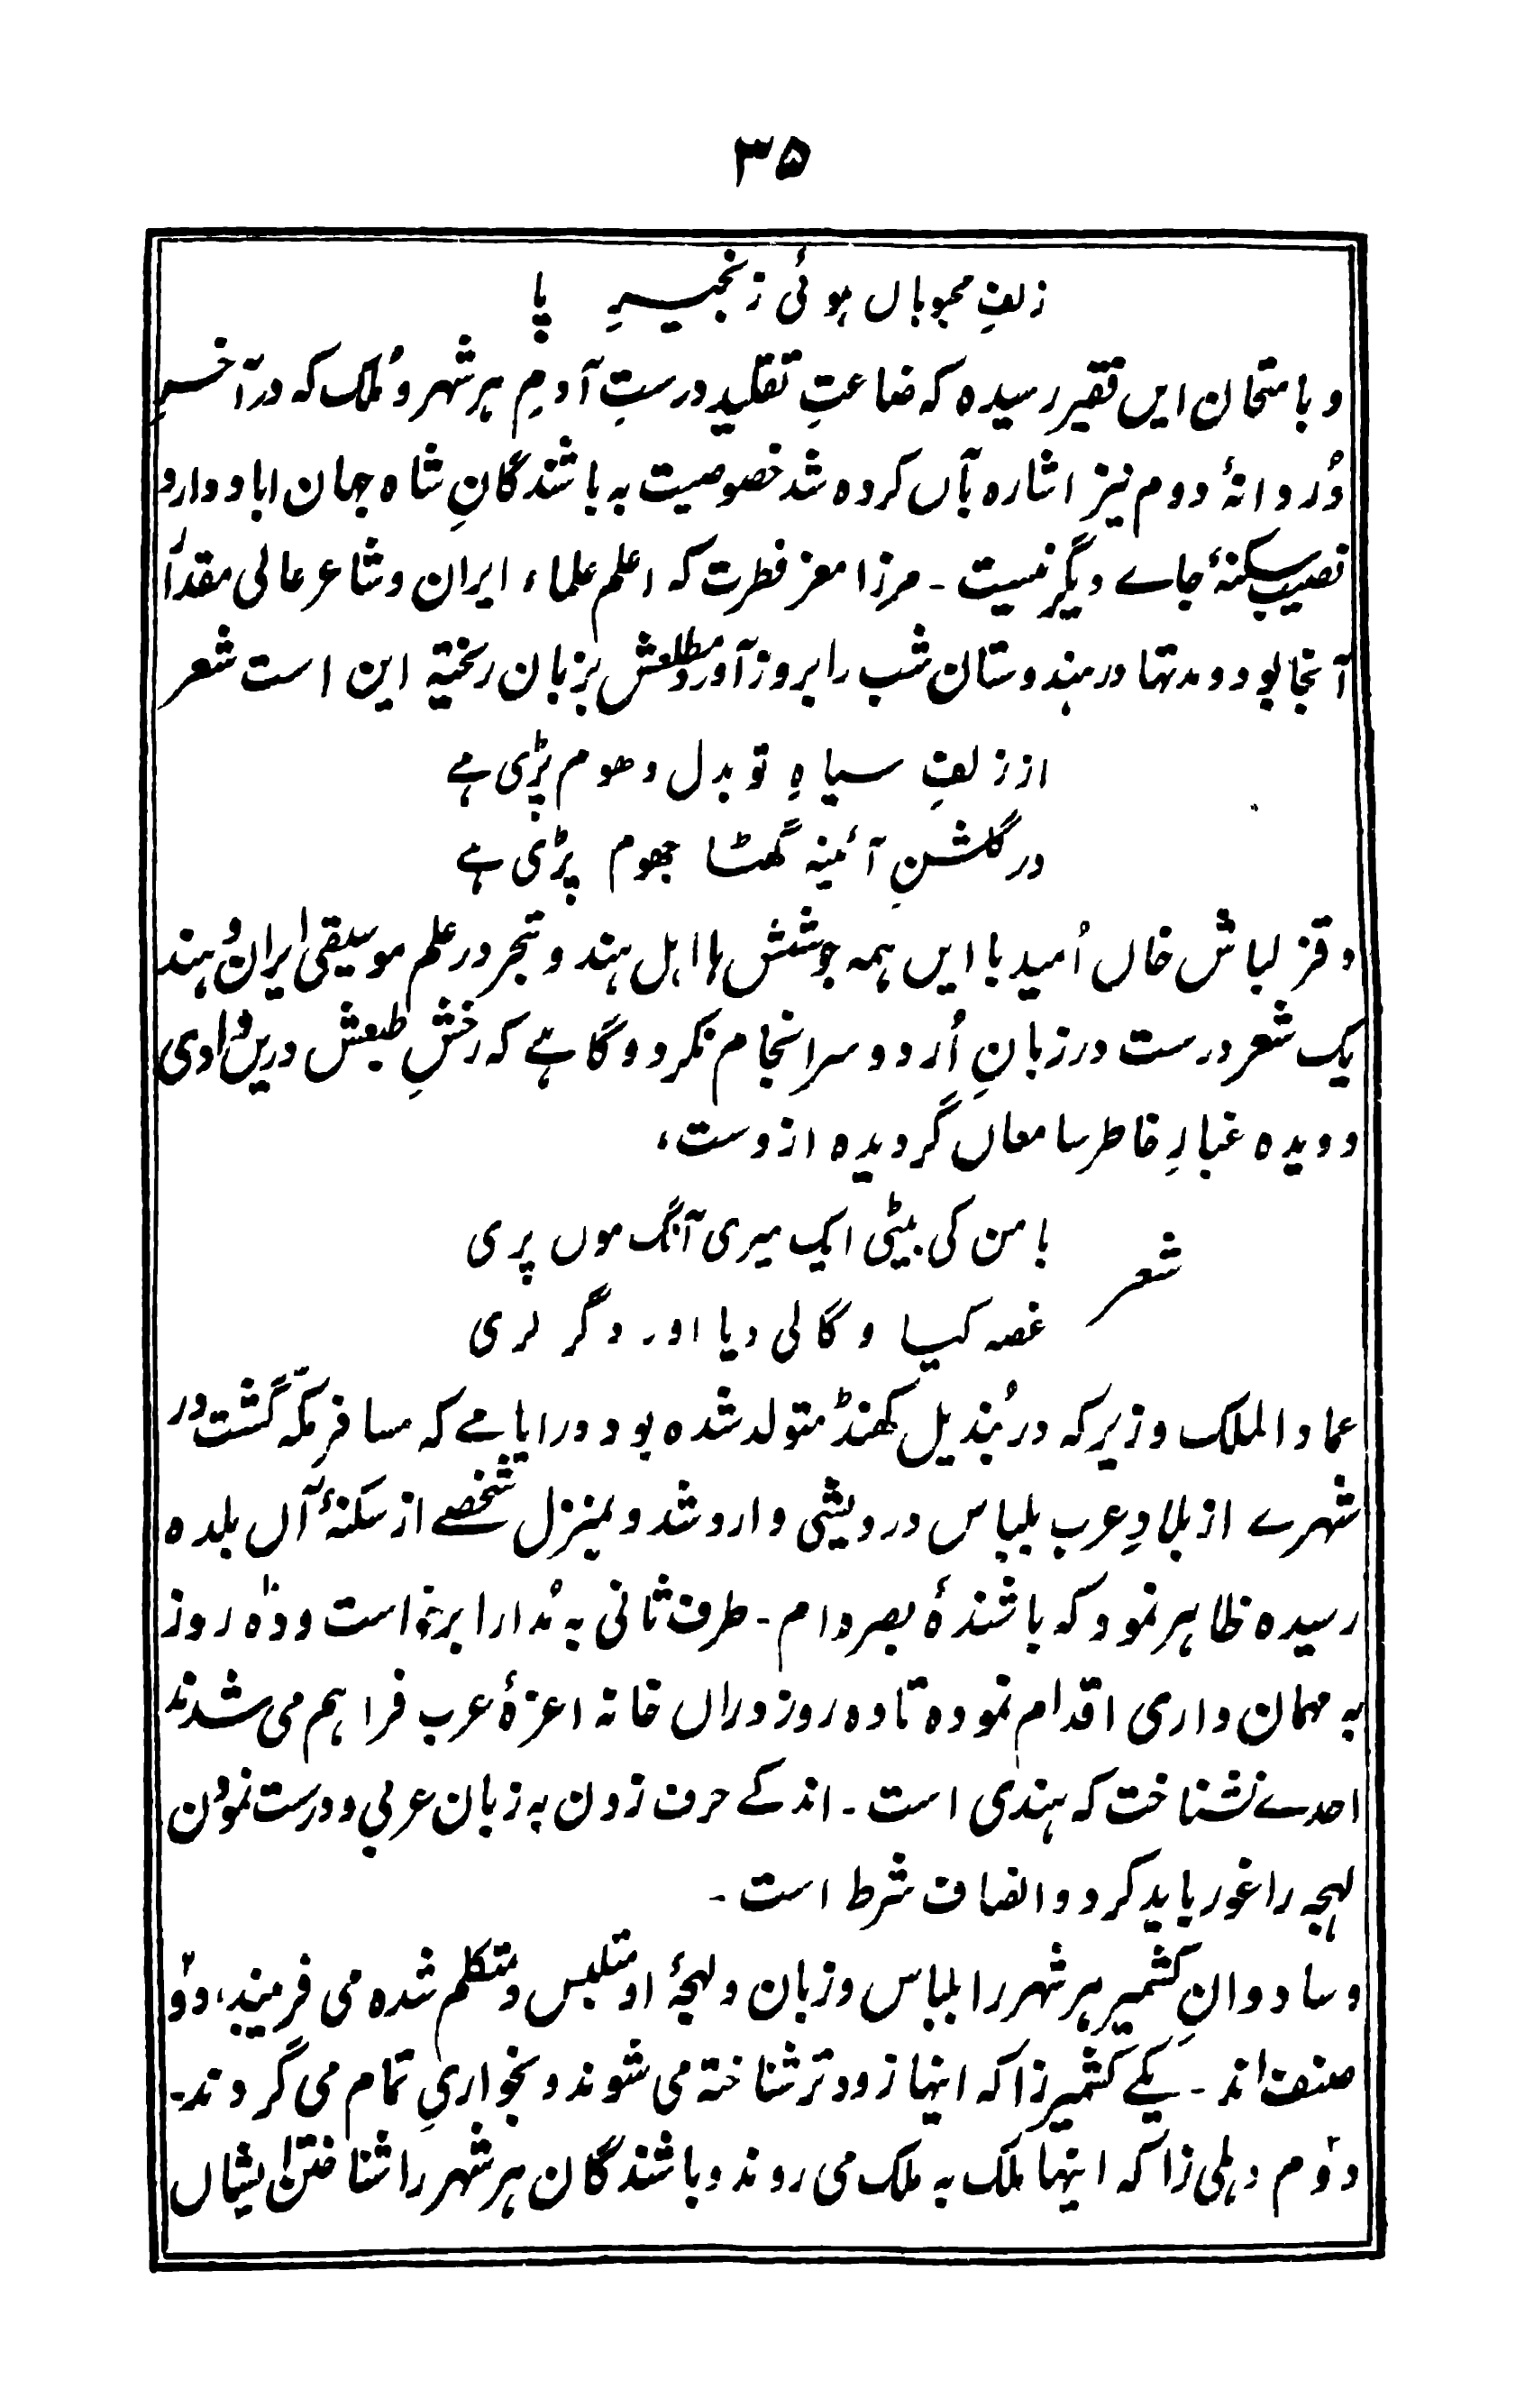 ۳۵
زلفِ محبوباں ہوئی زنجیرِ پا
و بامتحان ایں فقیر رسیدہ کہ ضاعتِ تقلید درستِ آدمِ ہر شہر و مُلک کہ در آخرِ
دُردانۂ دوم نیز اشارہ بآں کردہ شد خصوصیت بہ باشندگانِ شاہ جہان اباد دارد
نصیب سکنۂ جاے دیگر نیست ۔ مرزا معز فطرت کہ اعلم علماء ایران و شاعر عالی مقدار
آنجا بود و مدتہا در ہندوستان شب را بروز آورد مطلعش بزبان ریختہ این است شعر
از زلفِ سیاہِ تو بدل دھوم پڑی ہے
در گلشنِ آئینہ گھٹا جھوم پڑی ہے
و قزلباش خاں اُمید با ایں ہمہ جوشش با اہل ہند و تبحر در علم موسیقی ایران و ہند
یک شعر درست در زبانِ اُردو سرانجام نکرد و گاہے کہ رخشِ طبعش دریں وادی
دویدہ غبارِ خاطر سامعاں گردیدہ ازوست،
شعر
بامن کی بیٹی ایک میری آنگ موں پری
غصہ کیا و گالی دیا اور دگر لری
عماد الملک وزیر کہ در بُندیل کھنڈ متولد شدہ بود در ایامے کہ مسافر مکّہ گشت در
شہرے از بلادِ عرب بلباس درویشی وارد شد و بمنزل شخصے از سکنۂ آں بلدہ
رسیدہ ظاہر نمود کہ باشندۂ بصرہ ام ۔ طرف ثانی بہ مُدارا برخاست و دہ روز
بہ مہمان داری اقدام نمودہ تا دہ روز دراں خانہ اعزۂ عرب فراہم می شدند
احدے نشناخت کہ ہندی است ۔ اندکے حرف زدن بہ زبان عربی و درست نمودن
لہجہ را غور باید کرد و انصاف شرط است ۔
و سادوانِ کشمیر ہر شہر را بلباس و زبان و لہجۂ او متلبس و متکلم شدہ می فریبند، دو
صنف اند ۔ یکے کشمیر زا کہ اینہا زودتر شناختہ می شوند و بخواریِ تمام می گردند۔
دوم دہلی زا کہ اینہا ملک بہ ملک می روند و باشندگان ہر شہر را شناختن ایشاں